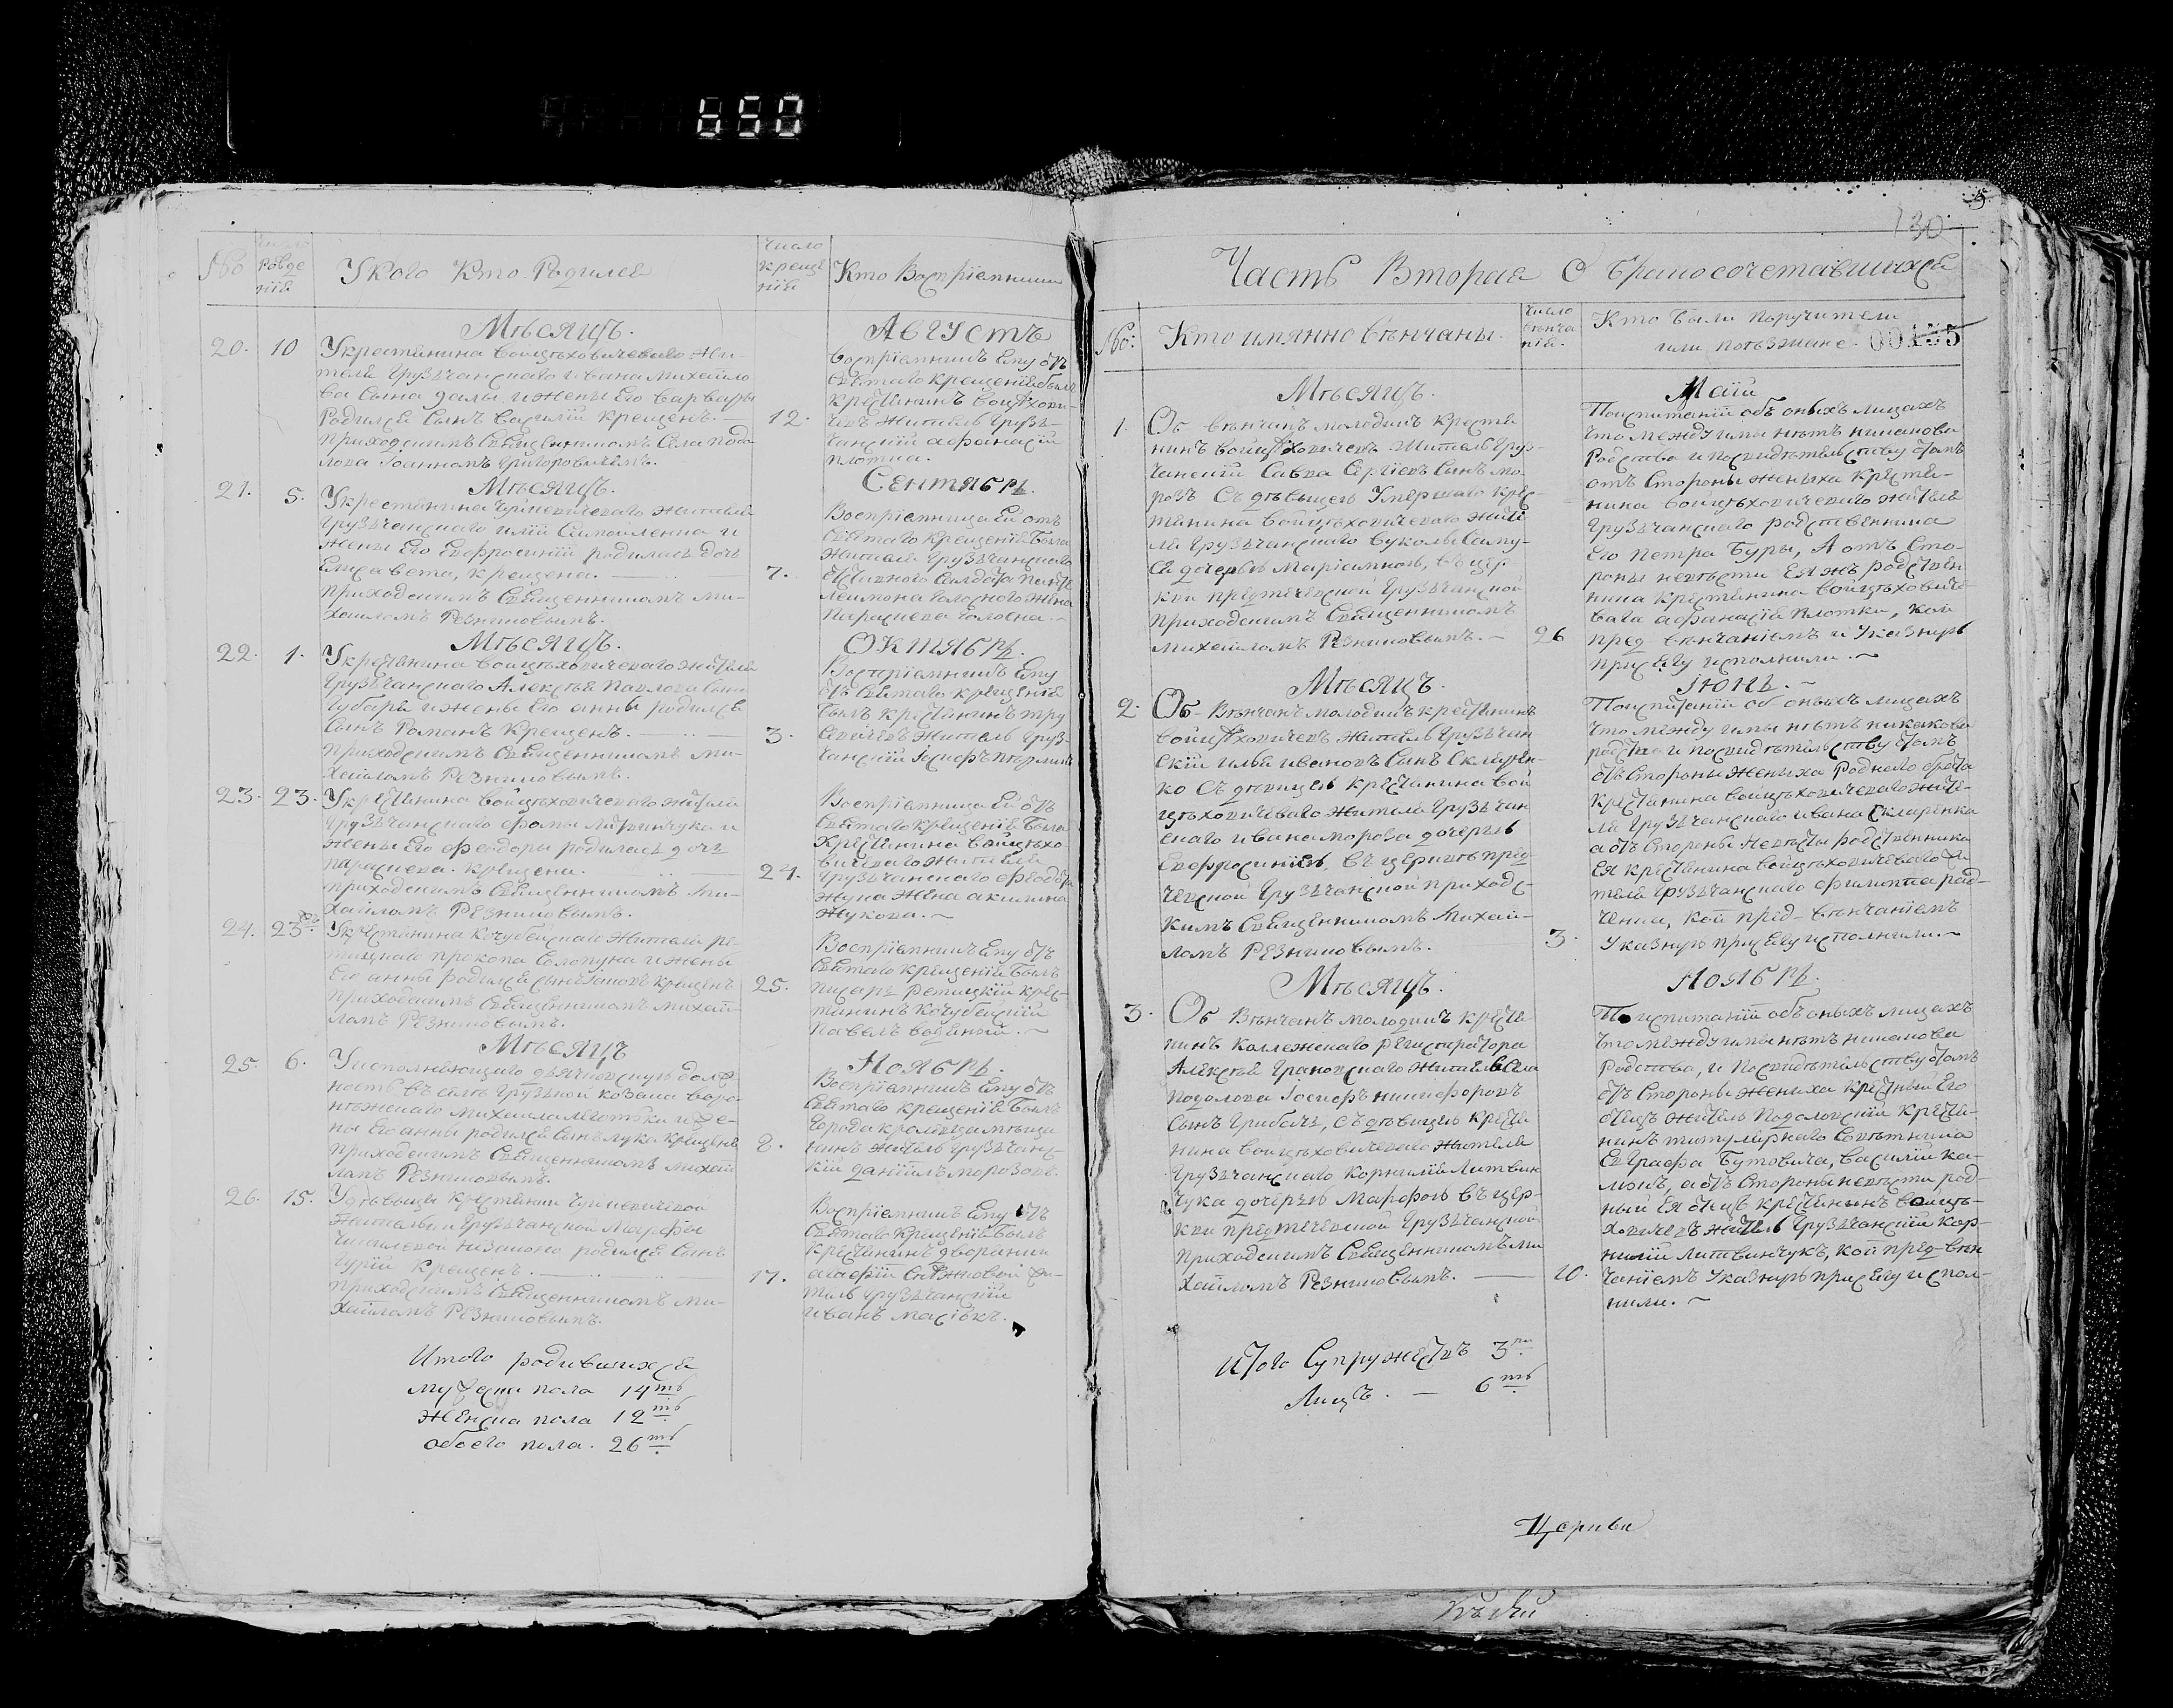 650
130
№
Число
рожде
нія
У кого Кто Родился
Число
креще
нія
Кто Воспріемники
Мѣсяцъ.
Августъ
20. 10
Укрестянина Войцѣховичеваго Жи-
теля Грузчанскаго Ивана Михайло
ва Сына ижены Его Варвары
Родился Сынъ Василій крещенъ. —
приходскимъ Священникомъ Села Подо
лова Іоанномъ Григоровичемъ.
12.
Воспріемникъ Ему отъ
Святаго крещенія былъ
крестянинъ Войцѣхови-
чевъ Житель Груз-
чанскій Афанасій
плотка.
Мѣсяцъ.
Сентябрь.
21. 5.
Укрестянина Жителя
Грузчанскаго Иліи и
жены Его Евфросиніи родилась дочь
Елисавета, крещена. —
приходскимъ Священникомъ Ми-
хаиломъ Резниковымъ.
7.
Воспріемница Ей отъ
Святаго крещенія была
Жителя Грузчанскаго
Солдата Панте
леимона Жена
Параскева
Мѣсяцъ.
Октябрь.
22. 1.
Укрестянина Войцѣховичеваго Жителя
Грузчанскаго Алексѣя Павлова Сына
Губаря ижены Его Анны родился
Сынъ Романъ Крещенъ. —
приходскимъ Священникомъ Ми-
хаиломъ Резниковымъ.
3.
Воспріемникъ Ему
отъ Святаго крещенія
былъ крестянинъ
Житель Груз-
чанскій Іосифъ
23. 23.
Укрестянина Войцѣховичеваго Жителя
Грузчанскаго Фомы Литвинчука и
жены Его Феодоры родилась дочь
Параскева. крещена.
приходскимъ Священникомъ Ми-
хаиломъ Резниковымъ.
24.
Воспріемница Ей отъ
Святаго крещенія была
Крестянина Войцѣхо-
вичеваго Жителя
Грузчанскаго Феодора
Жука Жена Акилина
Жукова. ~
24. 23
Укрестянина Кочубейскаго Жителя Ре-
тицкаго Прокопа ижены
Его Анны родился сынъ Іаковъ крещенъ
приходскимъ Священникомъ Михаи-
ломъ Резниковымъ.
25.
Воспріемникъ Ему отъ
Святаго крещенія былъ
писарь Ретицкій крес-
тянинъ Кочубейскій
Павелъ ~
Мѣсяцъ
Ноябрь.
25. 6.
Уисполняющаго дьячковскую долж-
ность въ селѣ Грузкой козака Воро-
нѣжскаго Михаила иже-
ны Его Анны родился Сынъ Лука крещенъ
приходскимъ Священникомъ Михаи-
ломъ Резниковымъ.
8.
Воспріемникъ Ему отъ
Святаго крещенія былъ
города мѣща
нинъ Житель Грузчанс-
кій Даніилъ Морозовъ.
26. 15.
Удѣвицы крестянки
Жительки Грузчанской Марфы
незаконо родился Сынъ
Гурій Крещенъ. —
приходскимъ Священникомъ Ми-
хаиломъ Резниковымъ.
17.
Воспріемникъ Ему отъ
Святаго крещенія былъ
крестянинъ дворянки
Жи-
тель Грузчанскій
Иванъ
Итого родившихся
мужеска пола 14ть
женска пола 12ть
обоего пола. 26ть
Часть Вторая О бракосочетавшихся
№:
Кто имянно вѣнчаны.
Число
вѣнча
нія.
Кто были поручители
или поѣзжане.
00155
Мѣсяцъ.
Маій
1.
Обвѣнчанъ молодикъ Крестя
нинъ Войцѣховичевъ Житель Груз-
чанскій Савва Сергіевъ Сынъ мо-
розъ Съ дѣвицею Умершаго крес-
тянина Войцѣховичеваго Жите
ля Грузчанскаго Вуколы
дочерью въ цер-
кви предтечевской Грузчанской
приходскимъ Священникомъ
Михаиломъ Резниковымъ. —
26
Поиспитаніи объ оныхъ лицахъ
что между ими нѣтъ никакова
родства и посвидѣтельству
отъ Стороны жениха крестя-
нина Войцѣховичеваго жителя
Грузчанскаго родственника
Его Петра Буры, А отъ Сто-
роны невѣсты Еяжъ родствен
ника крестянина Войцѣховиче
ваго Афанасія Плотки, кои
пред вѣнчаніемъ и Указную
присягу исполнили. ~
Мѣсяцъ.
Іюнь. ~
2.
Об-Вѣнчанъ молодикъ крестянинъ
Войцѣховичевъ Житель Грузчан
скій Илья Ивановъ Сынъ Скляren-
ко Съ дѣвицею крестянина Вой
цѣховичеваго Жителя Грузчан
скаго Ивана мороза дочерью
Евфросиніею, въ церквѣ пред-
чевской Грузчанской приходс-
кимъ Священникомъ Михаи-
ломъ Резниковымъ.
3.
Поиспитаніи об оныхъ лицахъ
что между ими нѣтъ никакова
родства и посвидѣтельству
отъ Стороны жениха Роднаго брата
крестянина Войцѣховичеваго жите-
ля Грузчанскаго Ивана Скляренка
а отъ Стороны Невѣсты родственника
Ея крестянина Войцѣховичеваго жи
теля Грузчанскаго Филиппа рад-
ченка, кои пред-вѣнчаніемъ
Указную присягу исполнили. ~
Мѣсяцъ.
Ноябрь.
3.
Об Вѣнчанъ молодикъ крестя-
нинъ коллежскаго регистратора
Алексѣя Грановскаго Житель Села
Подолова Іосифъ никифоровъ
Сынъ Грибачъ, съ дѣвицею крестя
нина Войцѣховичеваго жителя
Грузчанскаго Корнилія Литвин
чука дочерью Марфою въ цер-
кви предтечевской Грузчанской
приходскимъ Священникомъ Ми
хаиломъ Резниковымъ. —
10.
Поиспитаніи объ оныхъ лицахъ
что между ими нѣтъ никакова
родства, и посвидѣтельству
отъ Стороны жениха крестный Его
отецъ житель Подоловскій крестя-
нинъ титулярнаго Совѣтника
Евграфа Бутовича, Василій
а отъ Стороны невѣсты род-
ный Ея отецъ крестянинъ Войцѣ-
ховичевъ житель Грузчанскій кор-
нилій Литвинчукъ, кои пред-вѣн
чаніемъ Указную присягу испол-
нили. ~
Итого Супружествъ 3ри
Лицъ. — 6ть
Церкви